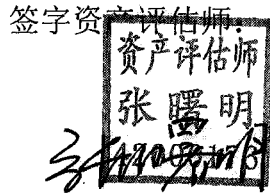 签字资产评估师:
资产评估师
张曙明